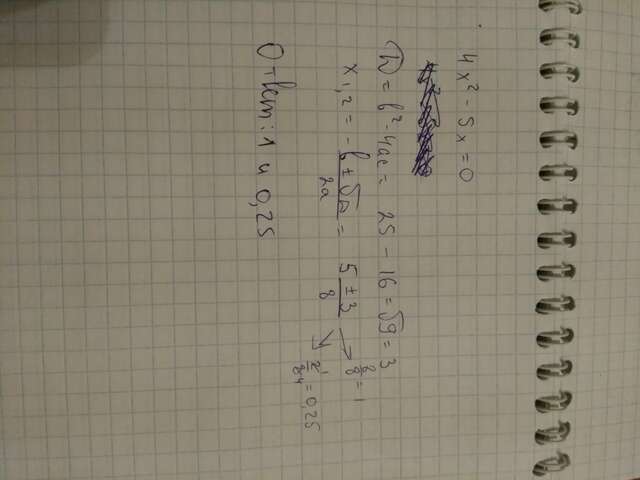 4x² - 5x = 0
D = b² - 4ac = 25 - 16 = √9 = 3
x₁,₂ = -b ± √D / 2a = 5 ± 3 / 8
8/8 = 1
2¹/8₄ = 0,25
Ответ: 1 и 0,25